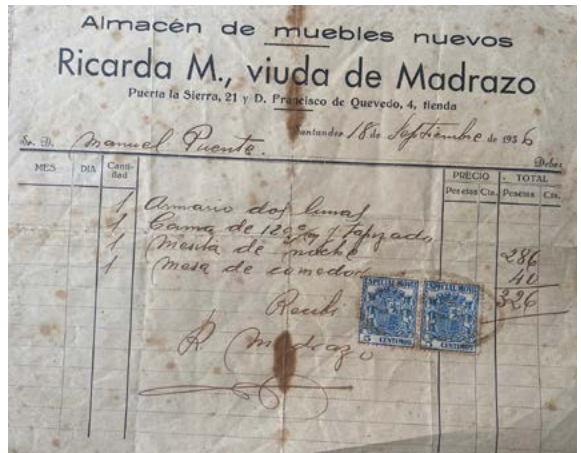 Almacén de muebles nuevos
Ricarda M., viuda de Madrazo
Puerta la Sierra, 21 y D. Francisco de Quevedo, 4, tienda
Santander 18 de Septiembre de 1936
Sr. D. Manuel Puente. Debe:
MES DIA Canti-dad PRECIO TOTAL
Pesetas Cts. Pesetas Cts.
1 Armario dos lunas
1 Cama de 120 y tapizado
1 Mesita de noche 286
1 mesa de comedor 40
326
Recibi
R Madrazo
ESPECIAL MOVIL ESPECIAL MOVIL
5 CENTIMOS 5 CENTIMOS